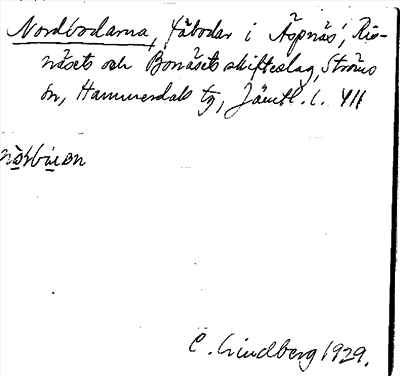 Nordbodarna, fäbodar i Äspnäs', Ris-
näsets och Bonäsets skifteslag, Ströms
sn, Hammerdals tg, Jämtl. l. YII
C. Lindberg 1929.